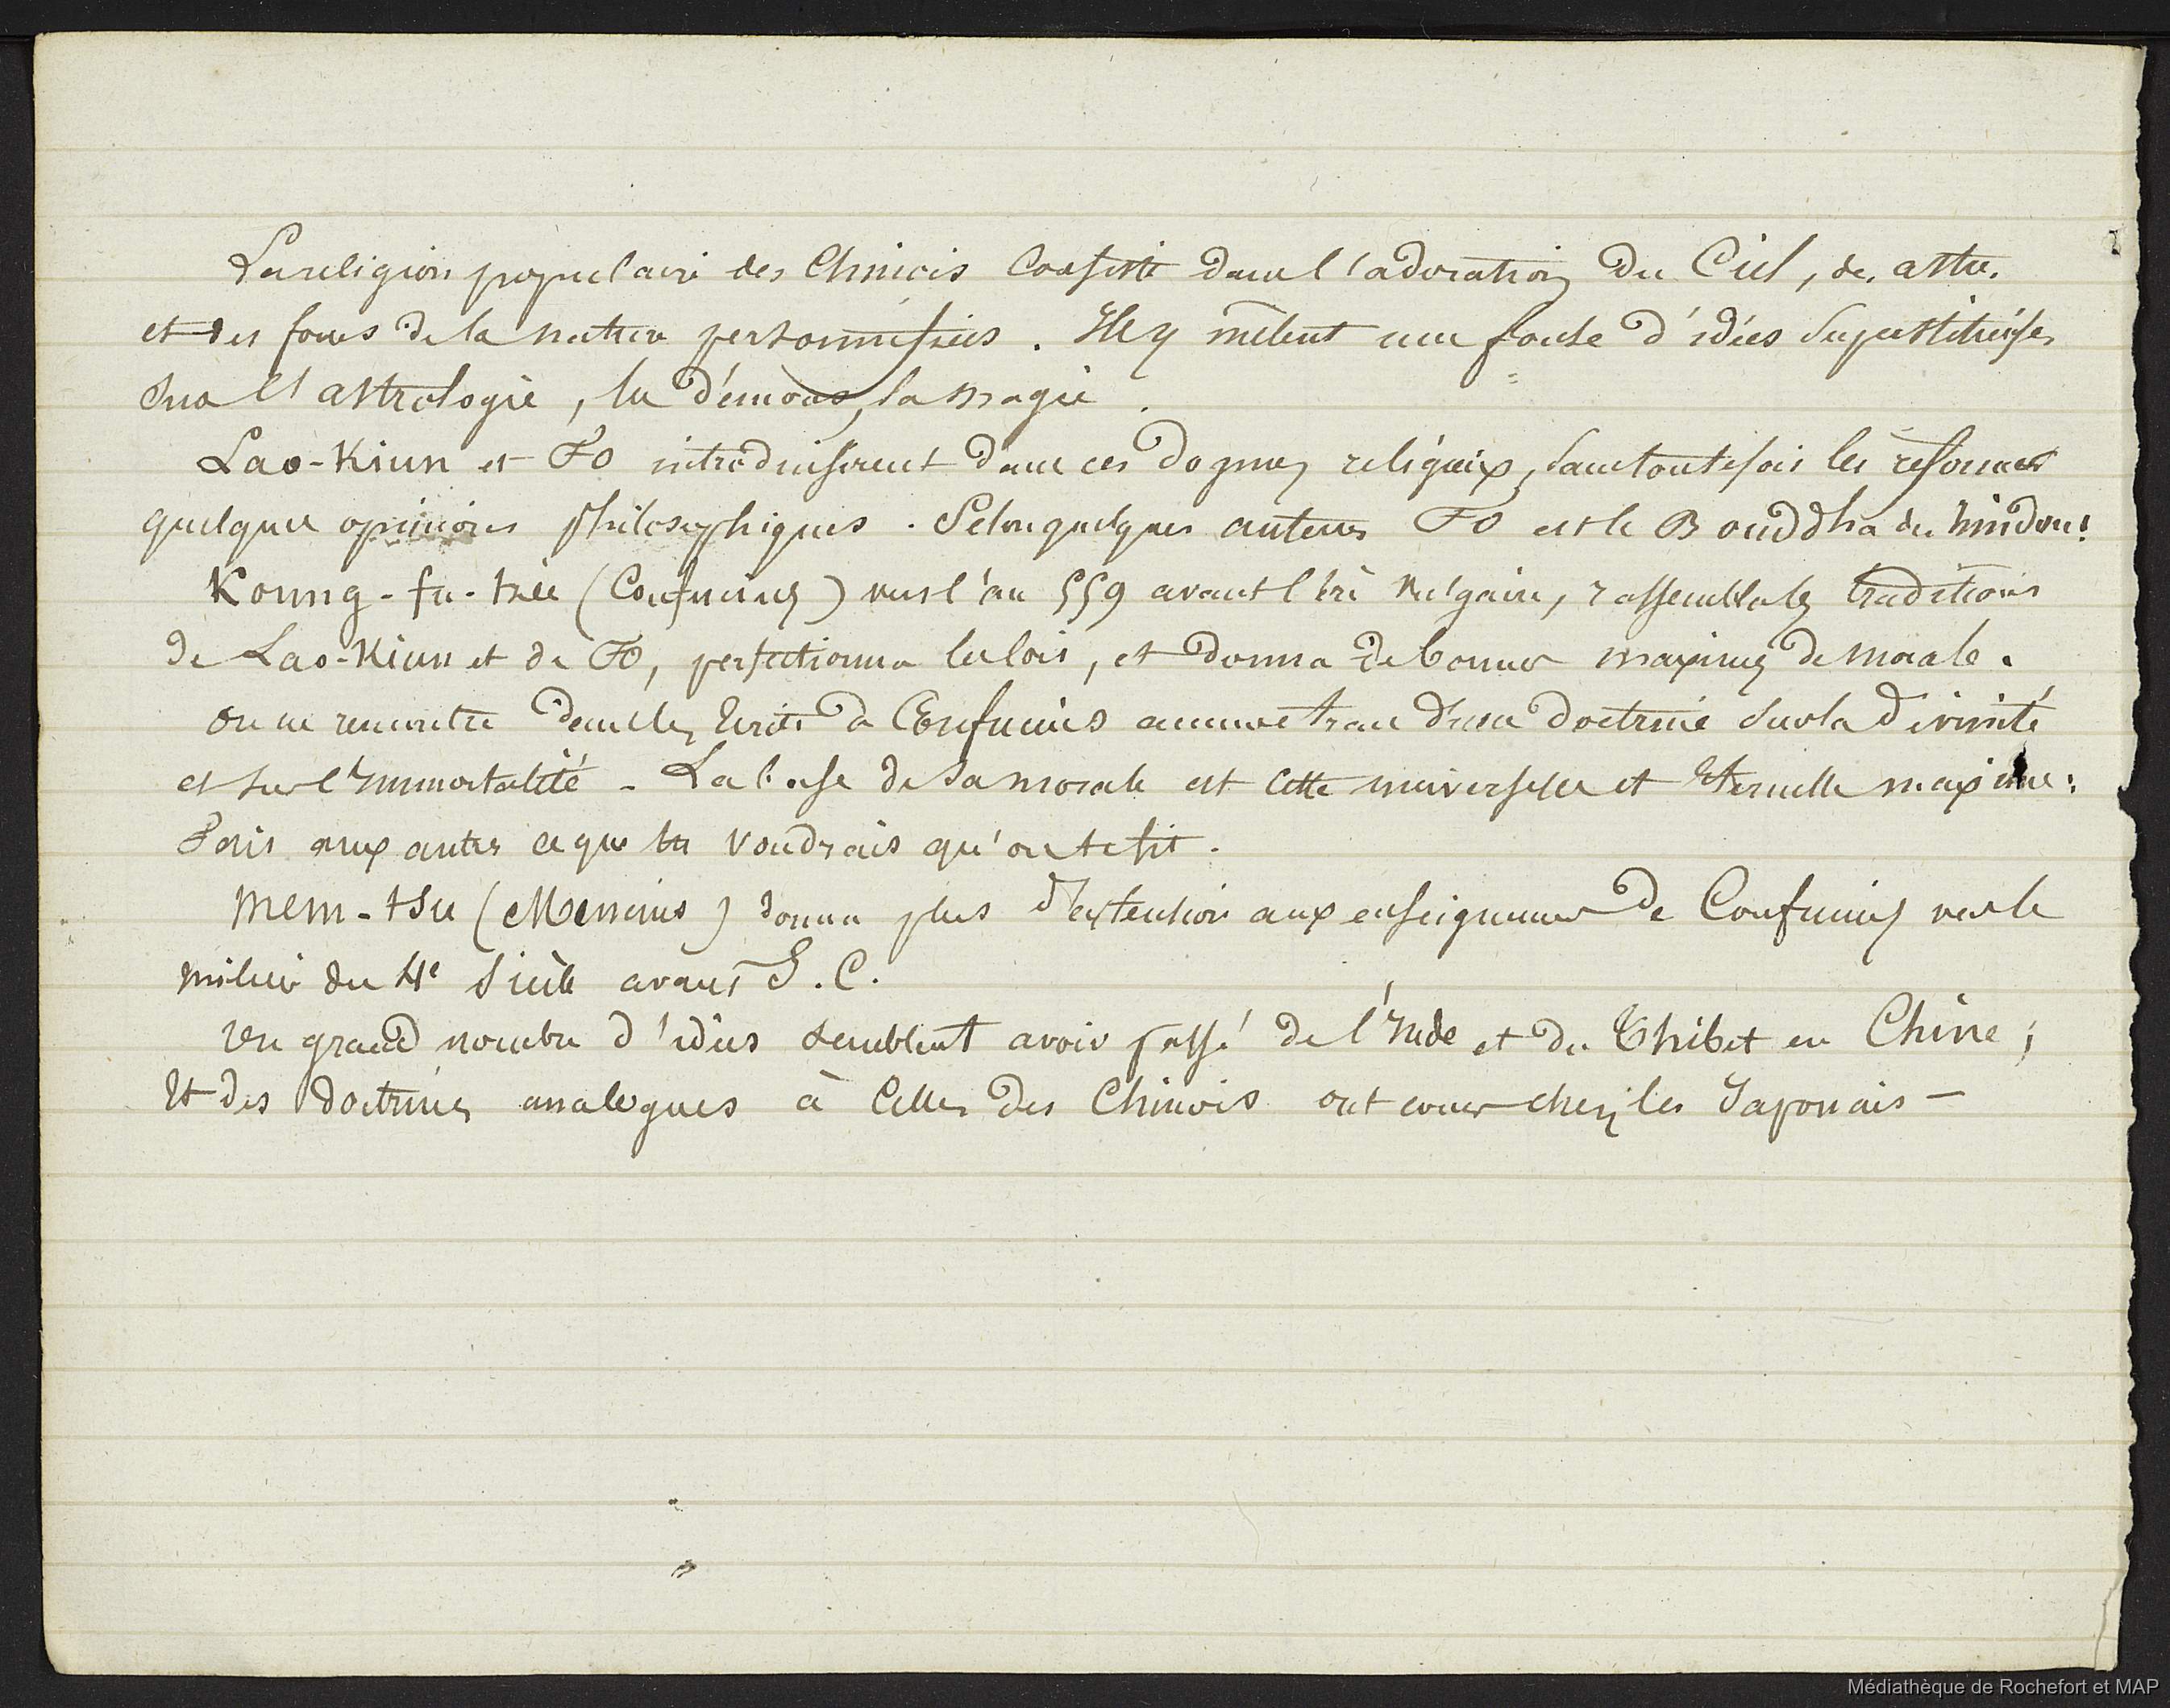 La religion populaire des Chinois Consiste dans l'adoration du Ciel, des astres
et des forces de la nature personnifiées. Ils y mêlent une foule d'idées Superstitieuses
Sur l'astrologie, les démons, la magie.
Lao-Kiun et Fo introduisirent dans ces dogmes religieux, sans toutefois les réformer
quelques opinions philosophiques. Selon quelques auteurs Fo est le Bouddha des hindous.
Koung-fu-tsée (Confucius) vers l'an 559 avant l'ère Vulgaire, rassembla les traditions
de Lao-Kiun et de Fo, perfectionna les lois, et donna de bonnes maximes de morale.
on ne rencontre dans les Ecrits de Confucius aucune trace d'une doctrine Sur la divinité
et sur l'Immortalité - La base de sa morale est cette universelle et Eternelle maxime:
Fais aux autres ce que tu voudrais qu'on te fit.
Mem-tsu (Memcius) donna plus d'extension aux enseignemens de Confucius vers le
milieu du 4e Siècle avant J. C.
Un grand nombre d'idées semblent avoir passé de l'Inde et du Thibet en Chine;
Et des doctrines analogues à Celles des Chinois ont cours chez les Japonais -
Médiathèque de Rochefort et MAP